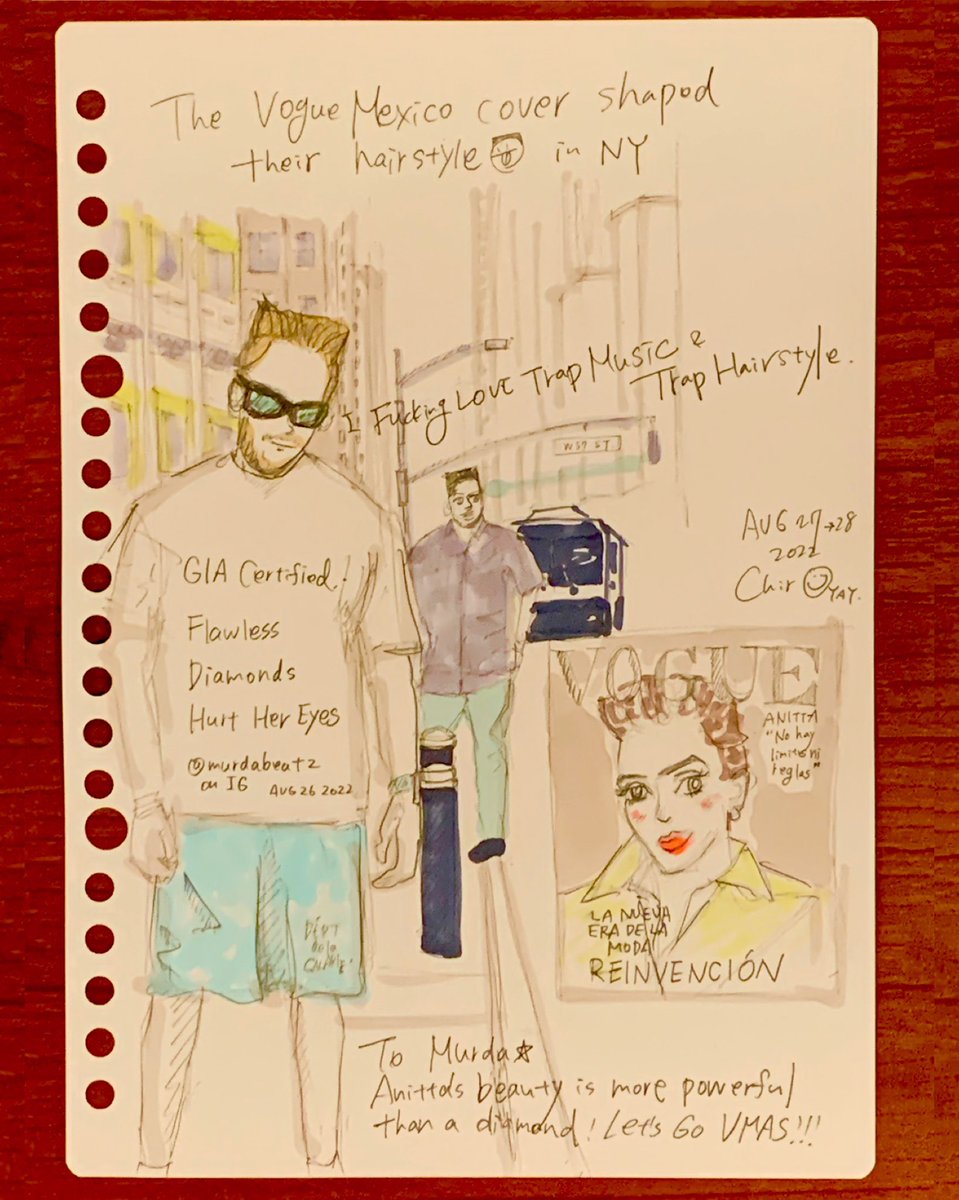 The Vogue Mexico cover shaped
their hairstyle in NY
I Fucking Love Trap Music &
Trap Hairstyle.
W 57 ST
AUG 27→28
2022
Chir YAY.
GIA Certified.
Flawless
Diamonds
Hurt Her Eyes
@murdabeatz
on IG AUG 26 2022
DEPT
de la
VOGUE
ANITTA
"No hay
limites ni
reglas"
LA NUEVA
ERA DE LA
MODA
REINVENCIÓN
To Murda☆
Anitta's beauty is more powerful
than a diamond! Let's Go VMAS!!!